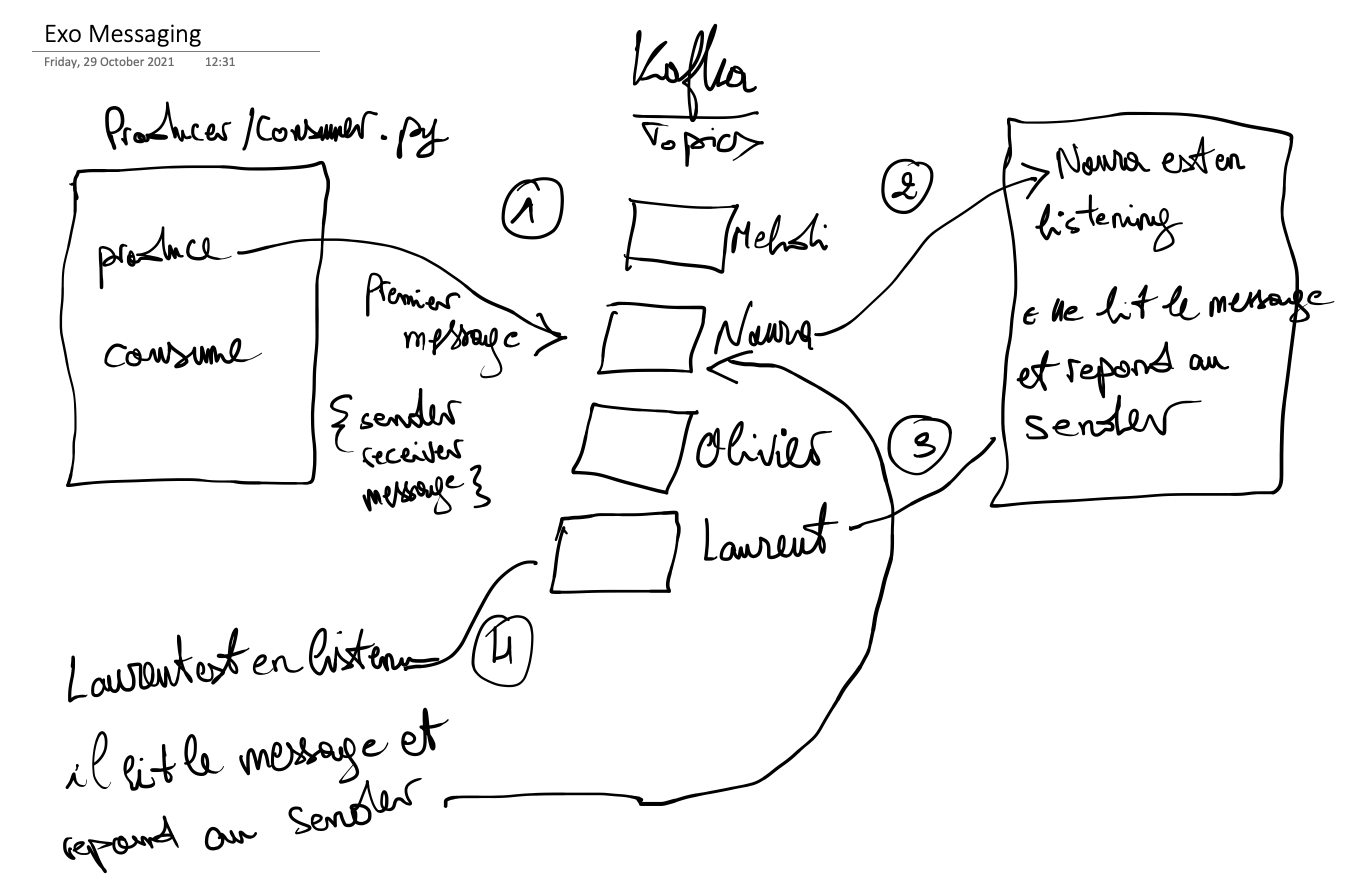 Exo Messaging
Friday, 29 October 2021 12:31
Kafka
Topics
Producer/Consumer.py
produce
consume
1
Premier
message
{ sender
receiver
message }
Mehdi
Noura
Olivier
Laurent
2
Noura est en
listening
elle lit le message
et repond au
sender
3
4
Laurent est en listen
il lit le message et
repond au sender